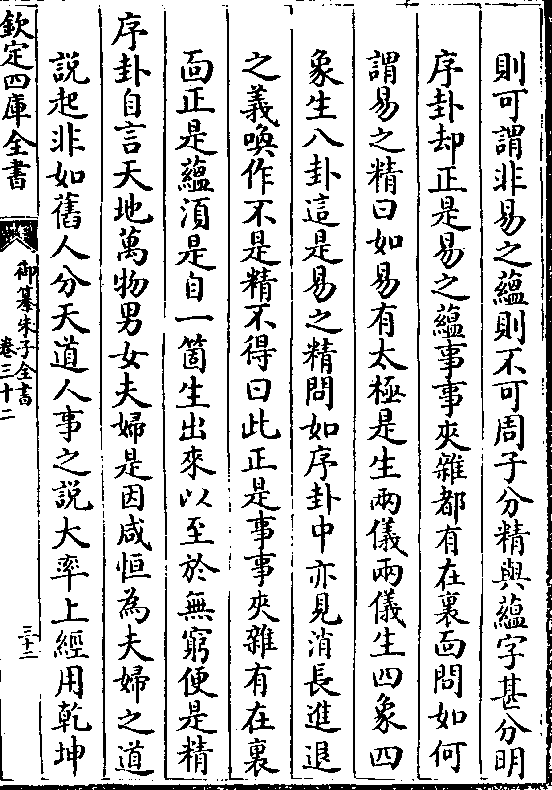 則可謂非易之蘊則不可周子分精與蘊字甚分明
序卦却正是易之蘊事事夾雜都有在裏面問如何
謂易之精曰如易有太極是生兩儀兩儀生四象四
象生八卦這是易之精問如序卦中亦見消長進退
之義喚作不是精不得曰此正是事事夾雜有在裏
面正是蘊須是自一箇生出來以至於無窮便是精
序卦自言天地萬物男女夫婦是因咸恒為夫婦之道
說起非如舊人分天道人事之說大率上經用乾坤
欽定四庫全書
御纂朱子全書
卷三十二
三十二